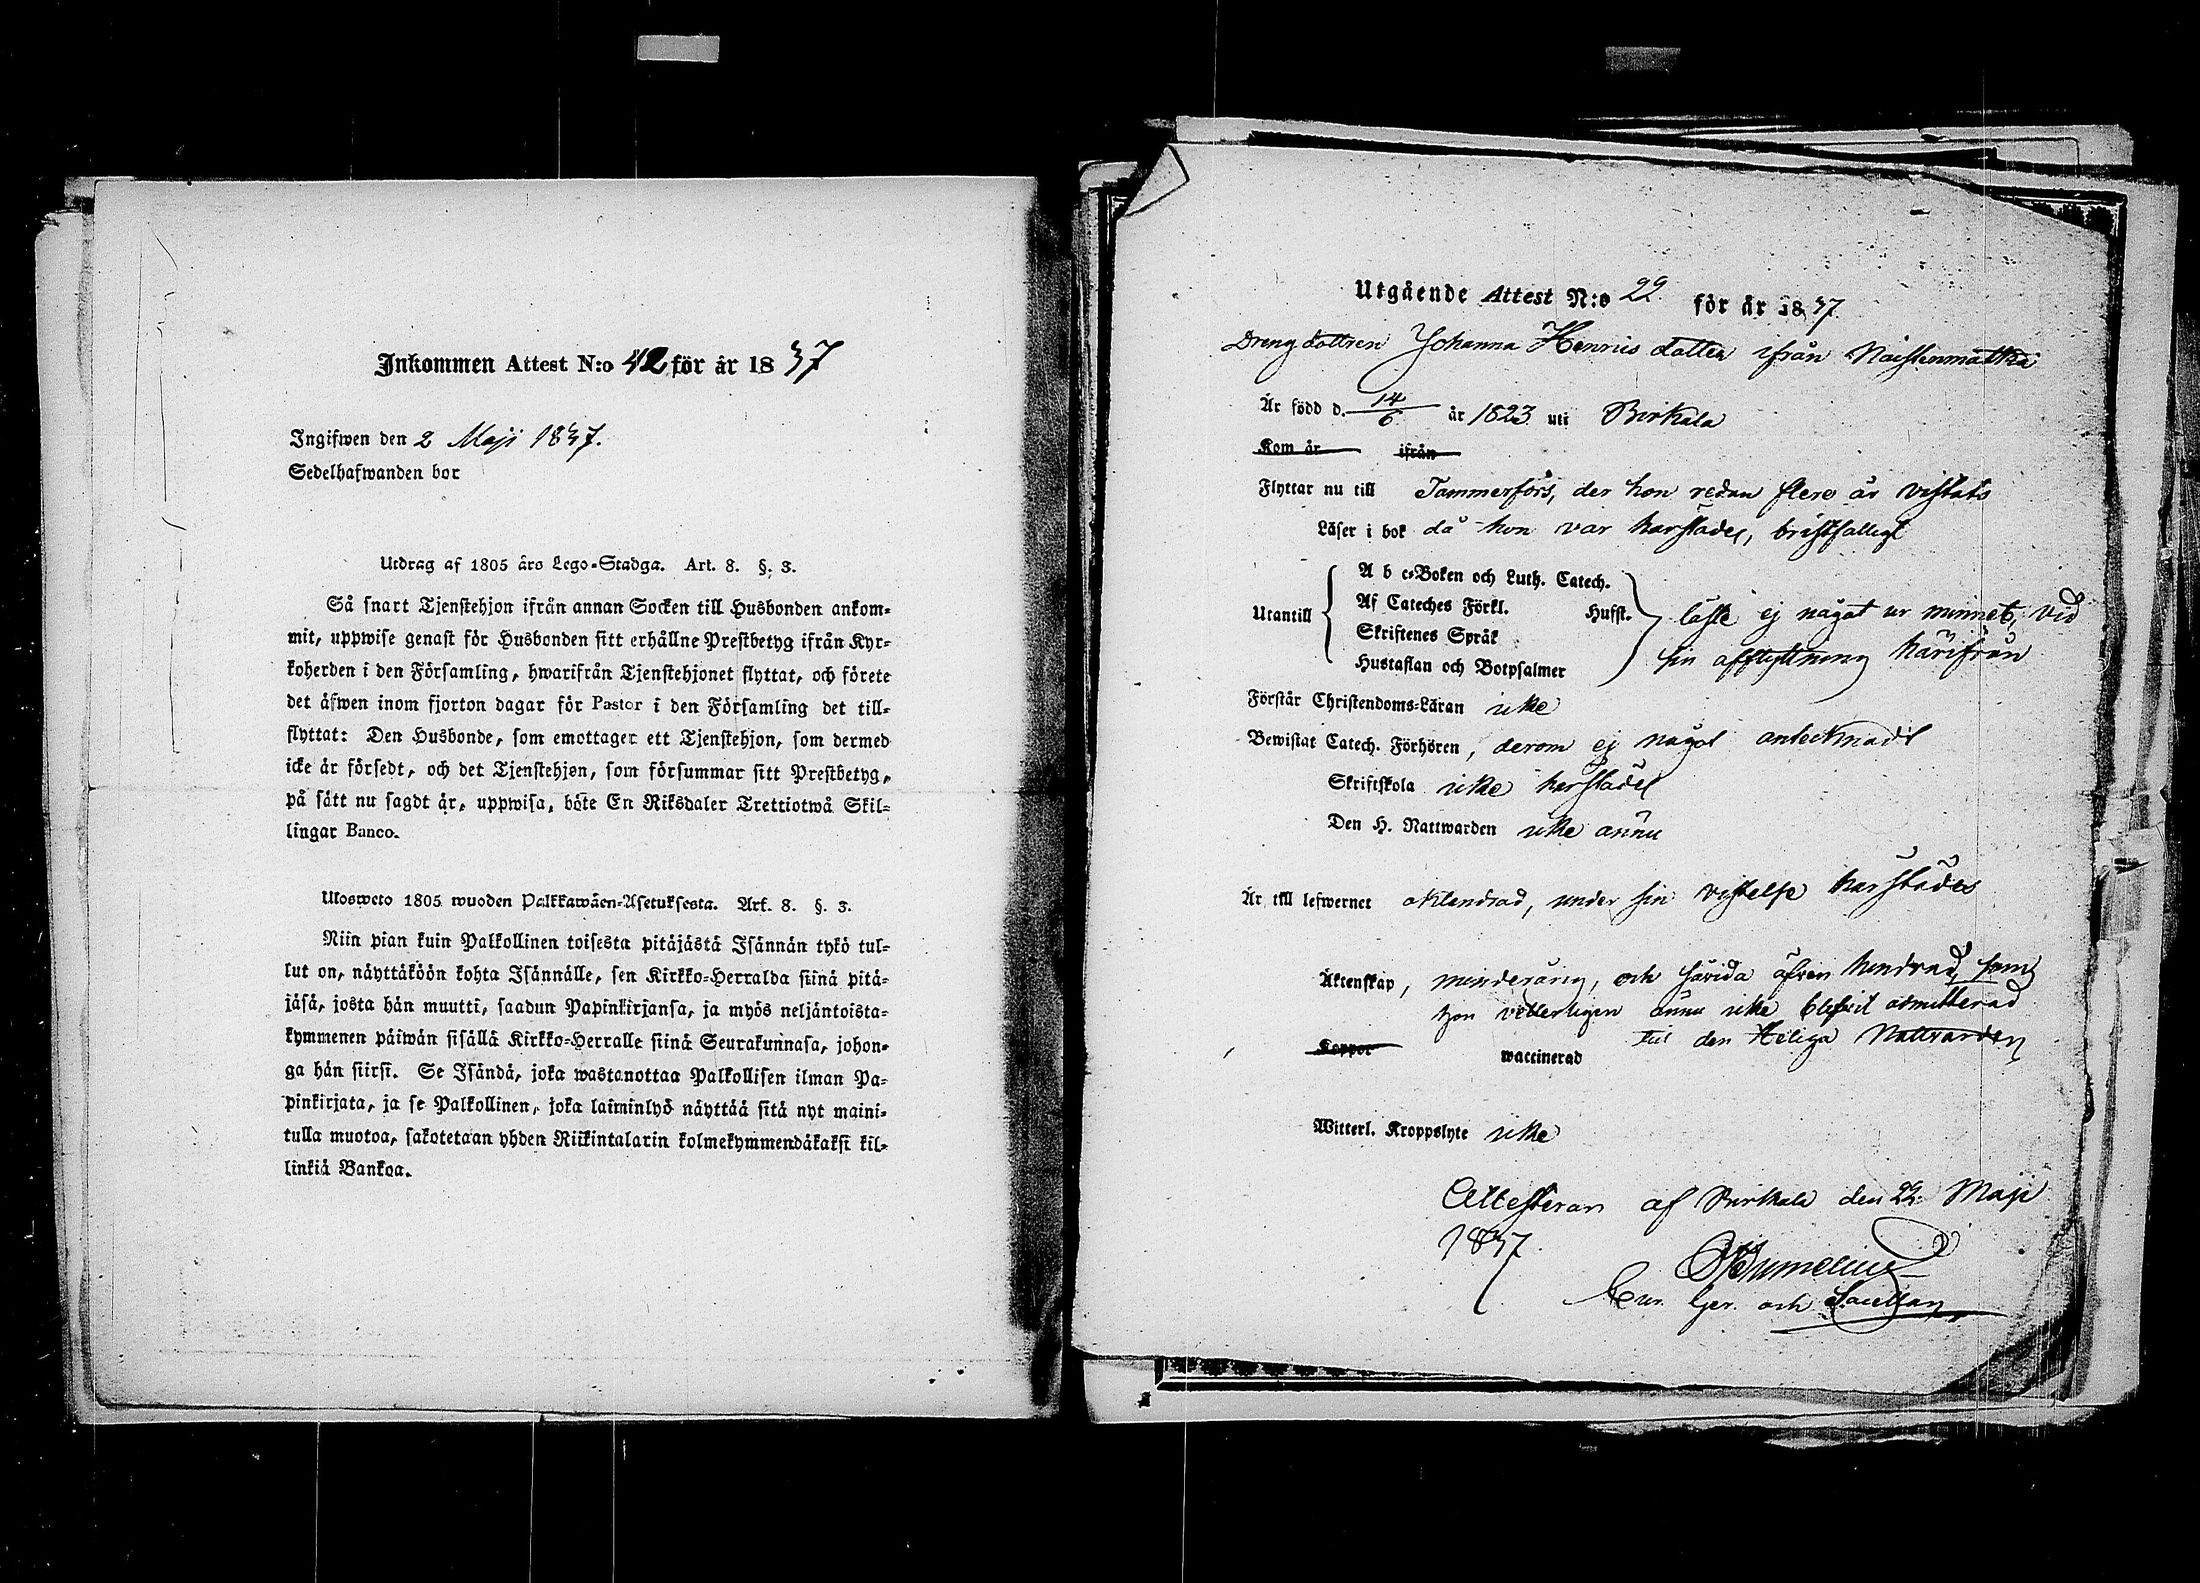 Inkommen Attest N:o 42 för år 1837
Ingifwen den 2 Maji 1837.
Sedelhafwanden bor
Utdrag af 1805 års Lego-Stadga. Art. 8. §. 3.
Så snart Tjenstehjon ifrån annan Socken till Husbonden ankom-
mit, uppwise genast för Husbonden sitt erhållne Prestbetyg ifrån Kyr-
koherden i den Församling, hwarifrån Tjenstehjonet flyttat, och förete
det äfwen inom fjorton dagar för Pastor i den Församling det till-
flyttat: Den Husbonde, som emottager ett Tjenstehjon, som dermed
icke är försedt, och det Tjenstehjon, som försummar sitt Prestbetyg,
på sätt nu sagdt är, uppwisa, böte En Riksdaler Trettiotwå Skil-
lingar Banco.
Ulosweto 1805 wuoden Palkkawäen-Asetuksesta. Art. 8. §. 3.
Niin pian kuin Palkollinen toisesta pitäjästä Isännän tykö tul-
lut on, näyttäköön kohta Isännälle, sen Kirkko-Herralda siinä pitä-
jäsä, josta hän muutti, saadun Papinkirjansa, ja myös neljäntoista-
kymmenen päiwän sisällä Kirkko-Herralle siinä Seurakunnasa, johon-
ga hän siirsi. Se Isändä, joka wastanottaa Palkollisen ilman Pa-
pinkirjata, ja se Palkollinen, joka laiminlyö näyttää sitä nyt maini-
tulla muotoa, sakotetaan yhden Riikintalarin kolmekymmendäkaksi kil-
linkiä Bankoa.
Utgående Attest N:o 22 för år 1837.
Drengdottren Johanna Henriks dotter ifrån Naistenmatka
Är född d. 14/6 år 1823 uti Birkala
Kom år ifrån
Flyttar nu till Tammerfors, der hon redan flere år vistats
Läser i bok då hon var härstädes, bristfälligt
A b c-Boken och Luth. Catech.
Af Cateches Förkl. Husst.
Utantill läste ej något ur minnet, vid
Skriftenes Språk
Hustaflan och Botpsalmer sin afflyttning härifrån
Förstår Christendoms-Läran icke
Bewistat Catech. Förhören, derom ej något antecknadt
Skriftskola icke härstädes
Den H. Nattwarden icke ännu
Är till lefwernet oklandrad, under sin vistelse härstädes
Äktenskap, minderårig, och såvida äfven hindrad, som
hon vetterligen ännu icke blifvit admitterad
till den Heliga Nattvarden
Koppor waccinerad
Witterl. Kroppslyte icke
Attesteras af Birkala den 22 Maji
1837.